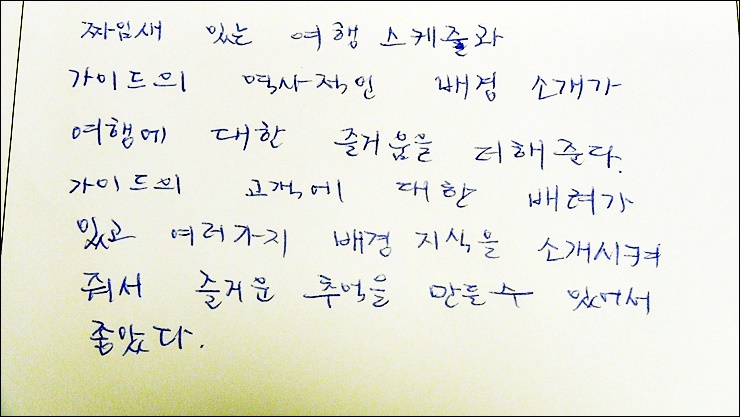 짜임새 있는 여행 스케쥴과
가이드의 역사적인 배경 소개가
여행에 대한 즐거움을 더해준다.
가이드의 고객에 대한 배려가
있고 여러가지 배경 지식을 소개시켜
줘서 즐거운 추억을 만들수 있어서
좋았다.